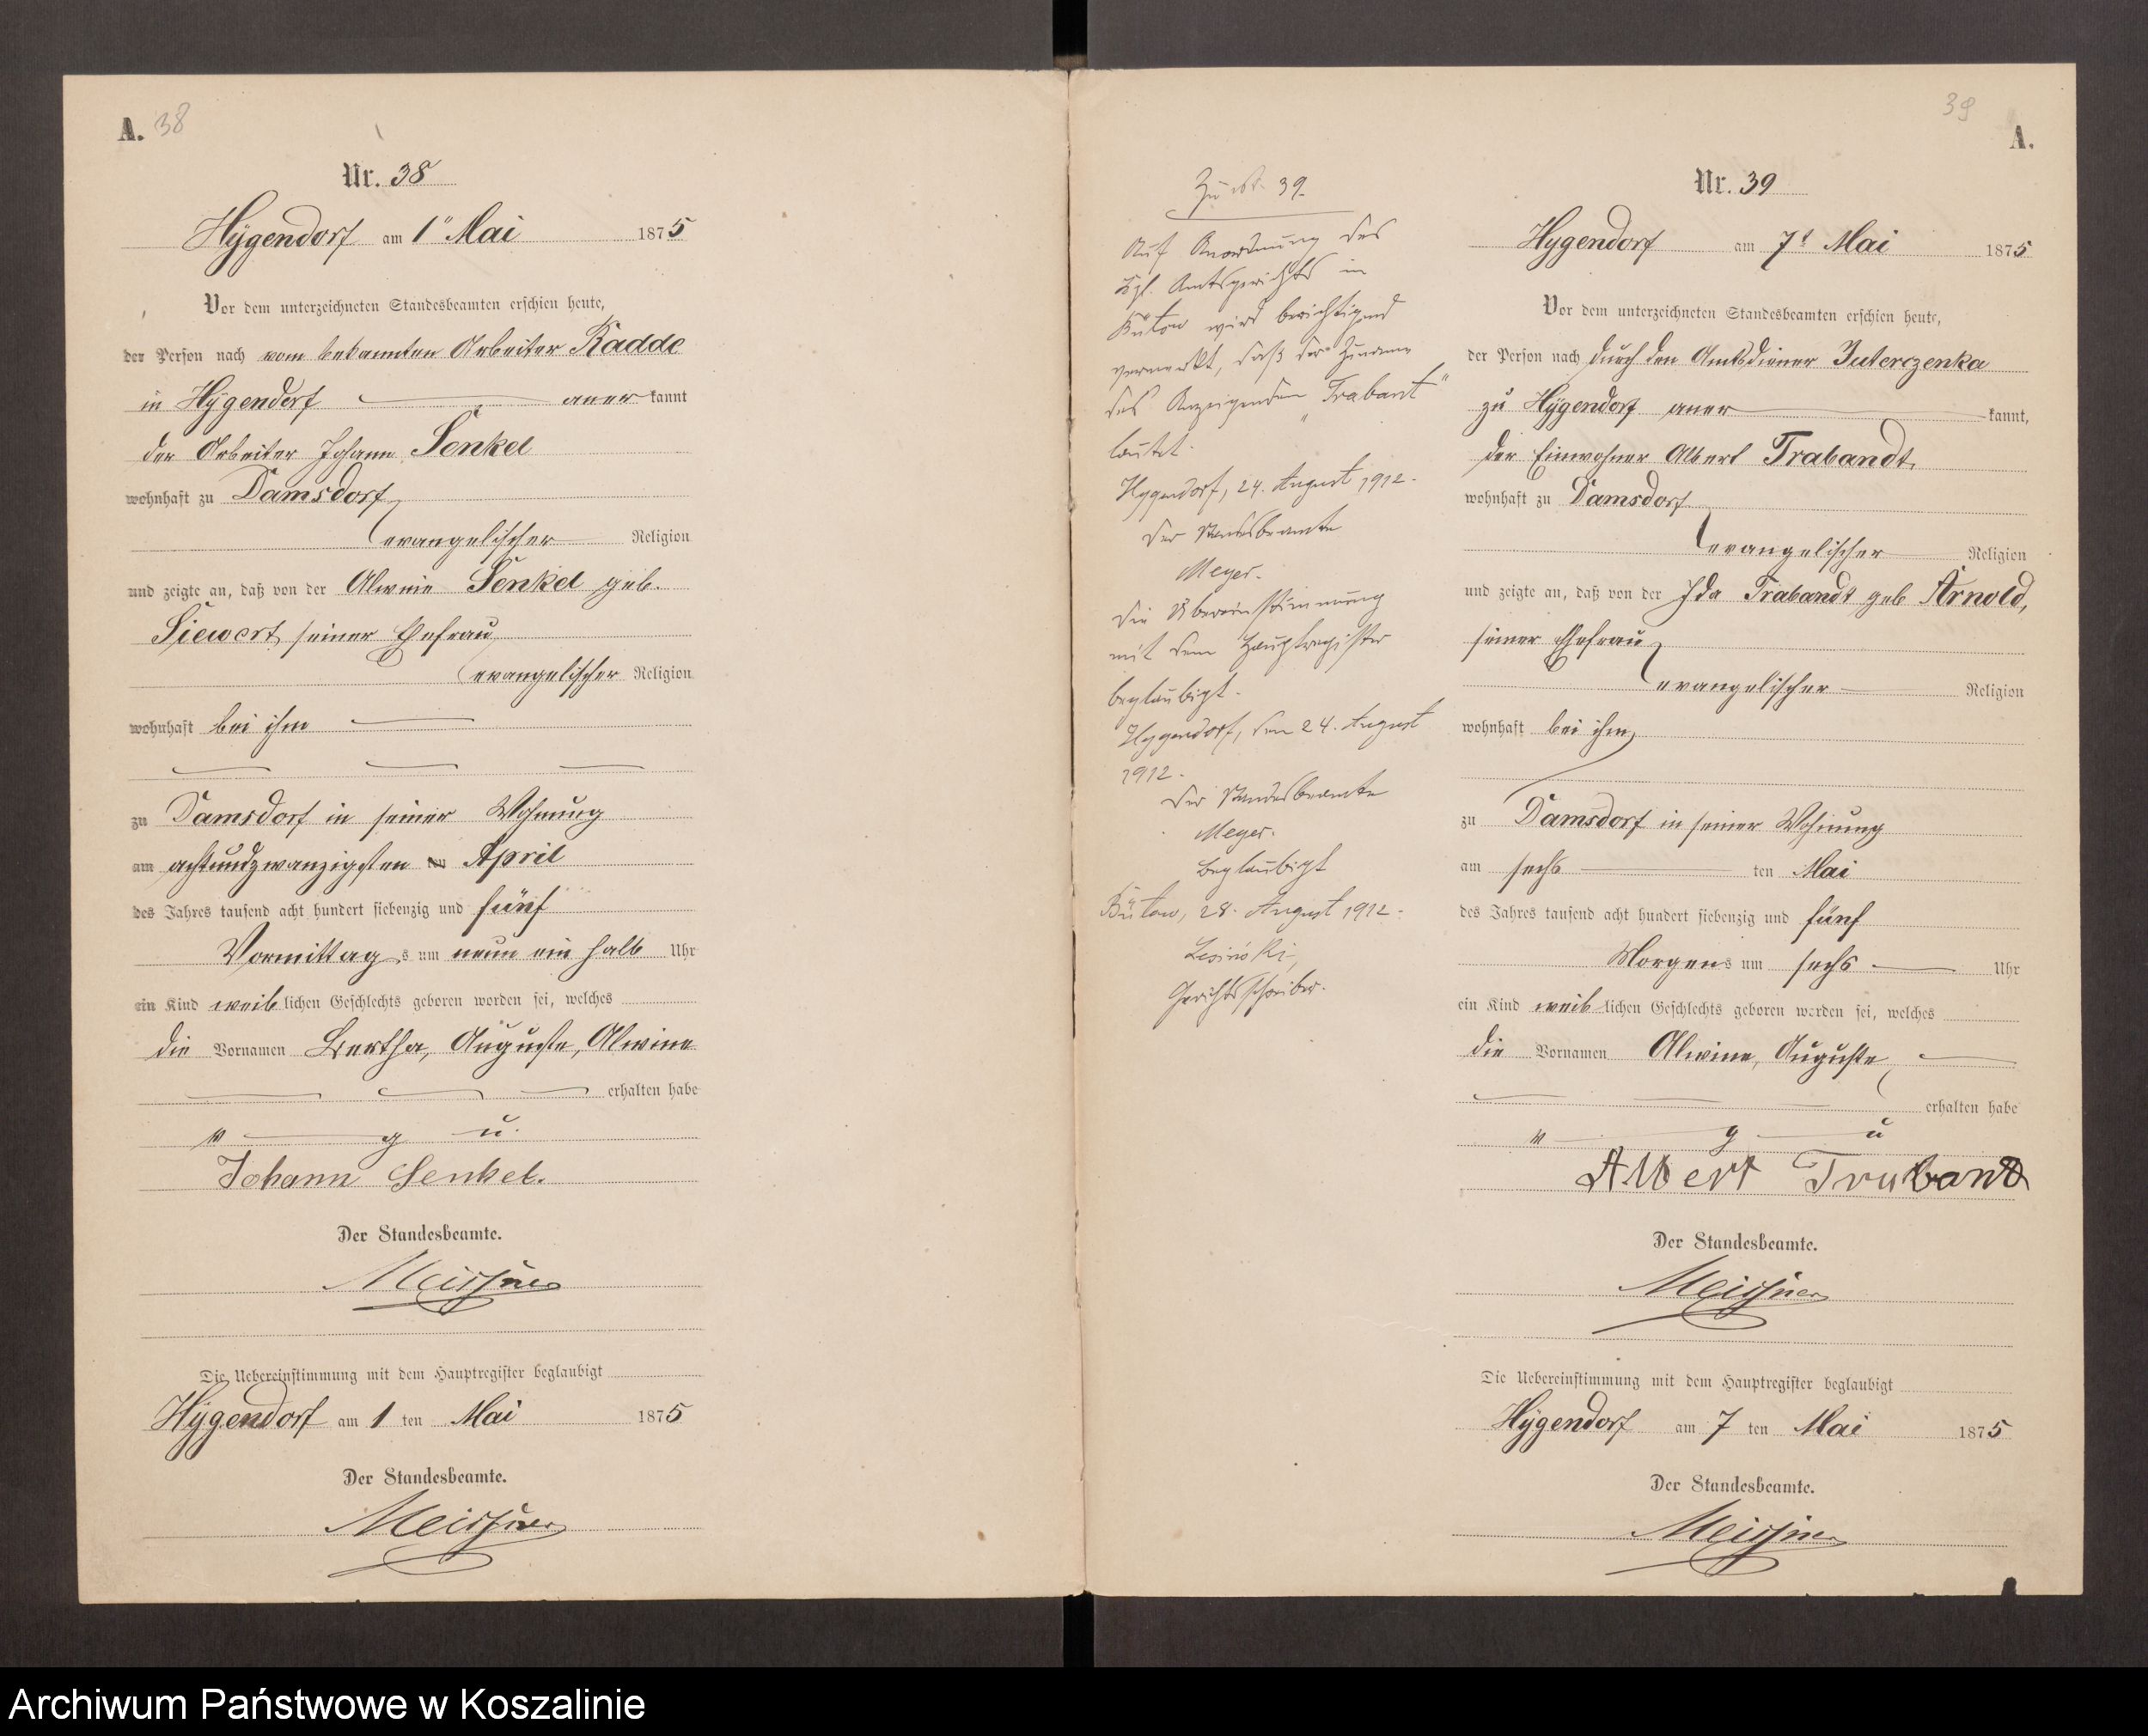 A. 38
Nr. 38
Hÿgendorf am 1t Mai 1875
Vor dem unterzeichneten Standesbeamten erschien heute,
der Person nach vom bekannten Arbeiter Radde
in Hÿgendorf aner kannt
der Arbeiter Johann Senkel
wohnhaft zu Damsdorf,
evangelischer Religion
und zeigte an, daß von der Alwine Senkel geb.
Siewert, seiner Ehefrau,
evangelischer Religion
wohnhaft bei ihm
zu Damsdorf in seiner Wohnung
am achtundzwanzigsten April
des Jahres tausend acht hundert siebenzig und fünf
Vormittag s um neun ein halb Uhr
ein Kind weib lichen Geschlechts geboren worden sei, welches
die Vornamen Bertha, Auguste, Alwine
erhalten habe
v g u.
Johann Senkel.
Der Standesbeamte.
Meissner
Die Uebereinstimmung mit dem Hauptregister beglaubigt
Hÿgendorf am 1 ten Mai 1875
Der Standesbeamte.
Meissner
Zu Nr. 39.
Auf Anordnung des
Kgl. Amtsgerichts in
Bütow wird berichtigend
vermerkt, daß der Zuname
des Anzeigenden „Trabant“
lautet.
Hygendorf, 24. August 1912.
Der Standesbeamte
Meyer.
Die Übereinstimmung
mit dem Hauptregister
beglaubigt.
Hygendorf, den 24. August
1912.
Der Standesbeamte
Meyer.
Beglaubigt
Bütow, 28. August 1912.
Lesinski,
Gerichtsschreiber.
39
A.
Nr. 39
Hygendorf am 7t Mai 1875
Vor dem unterzeichneten Standesbeamten erschien heute,
der Person nach durch den Amtsdiener Juterczenka
zu Hÿgendorf aner kannt,
der Einwohner Albert Trabandt,
wohnhaft zu Damsdorf
evangelischer Religion
und zeigte an, daß von der Ida Trabandt geb Arnold,
seiner Ehefrau,
evangelischer Religion
wohnhaft bei ihm,
zu Damsdorf in seiner Wohnung
am sechs ten Mai
des Jahres tausend acht hundert siebenzig und fünf
Morgens um sechs Uhr
ein Kind weib lichen Geschlechts geboren worden sei, welches
die Vornamen Alwine, Auguste,
erhalten habe
v g u
Albert Traband
Der Standesbeamte.
Meissner
Die Uebereinstimmung mit dem Hauptregister beglaubigt
Hÿgendorf am 7 ten Mai 1875
Der Standesbeamte.
Meissner
Archiwum Państwowe w Koszalinie